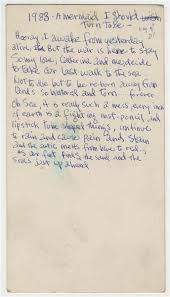 1983 - A mermaid I should
Turn To be -
Hooray I awake from yesterday
alive, but the war is here to stay
So my love, Catherina and me decide
To take our last walk to the sea
Not to die but to be re-born away from
lands so battered and torn - forever
Oh Sea, it is really such a mess, every inch
of earth is a fighting nest - pencil, and
lipstick tube shaped things, continue
to rain and cause pain, and stain
and the arctic melts from blue to red -
as our feet finds the sand, and the
sea is just up ahead